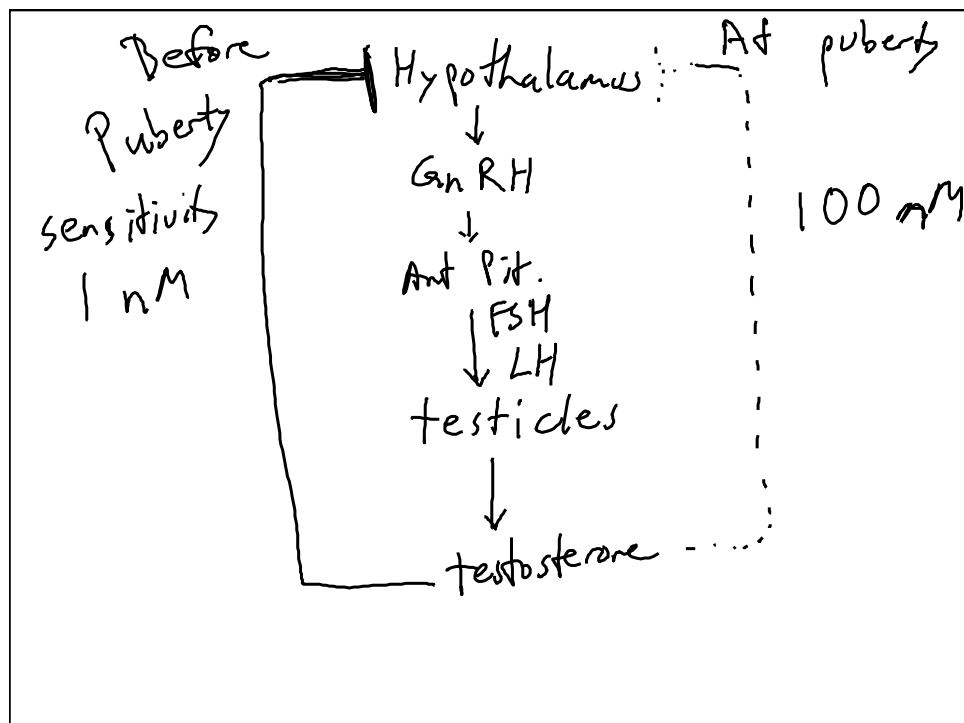 Before
Puberty
sensitivity
1 nM
Hypothalamus
GnRH
Ant Pit.
FSH
LH
testicles
testosterone
At puberty
100 nM